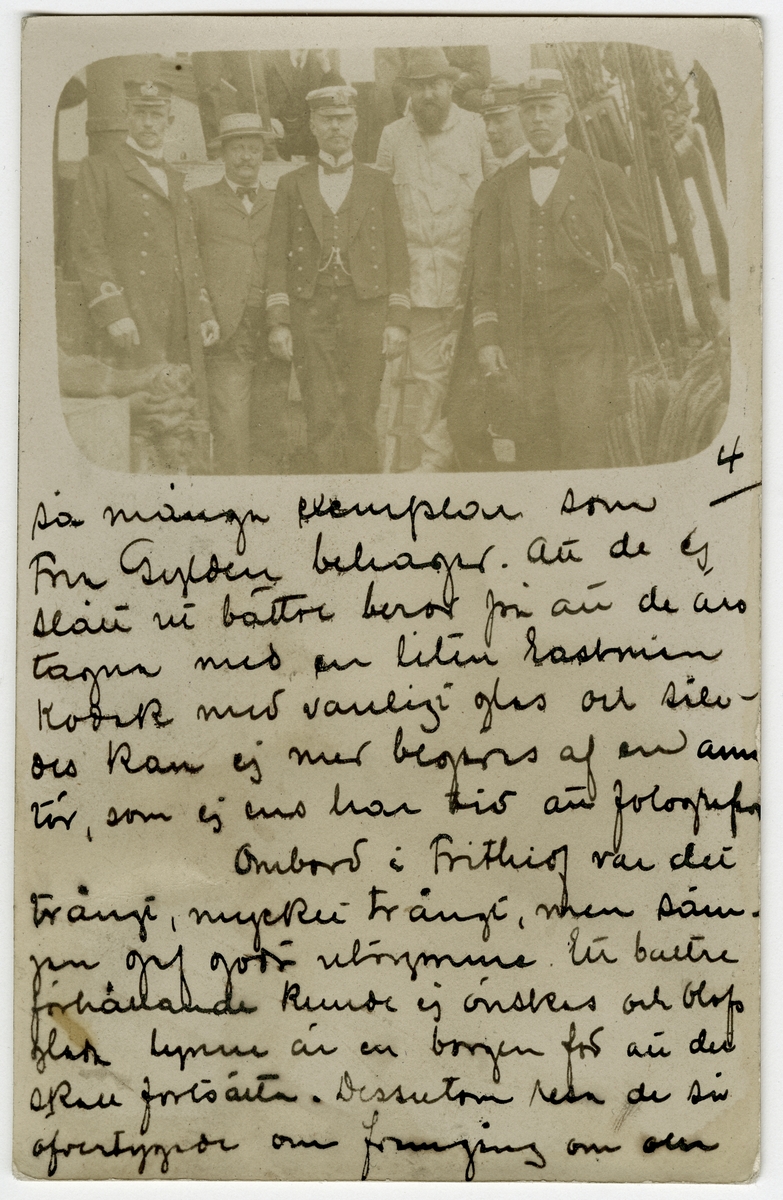 4
så många exemplar som
Fru Gyldén behagar. Att de ej
slått ut bättre beror på att de äro
tagna med en liten Eastman
Kodak med vanligt glas och såle-
des kan ej mer begäras af en ama
tör, som ej ens har tid att fotografera
Ombord i Frithiof var det
trångt, mycket trångt, men säm-
jan gaf godt utrymme. Ett bättre
förhållande kunde ej önskas och Olofs
glada lynne är en borgen för att det
skall fortsätta. Dessutom resa de så
öfvertygade om framgång om den